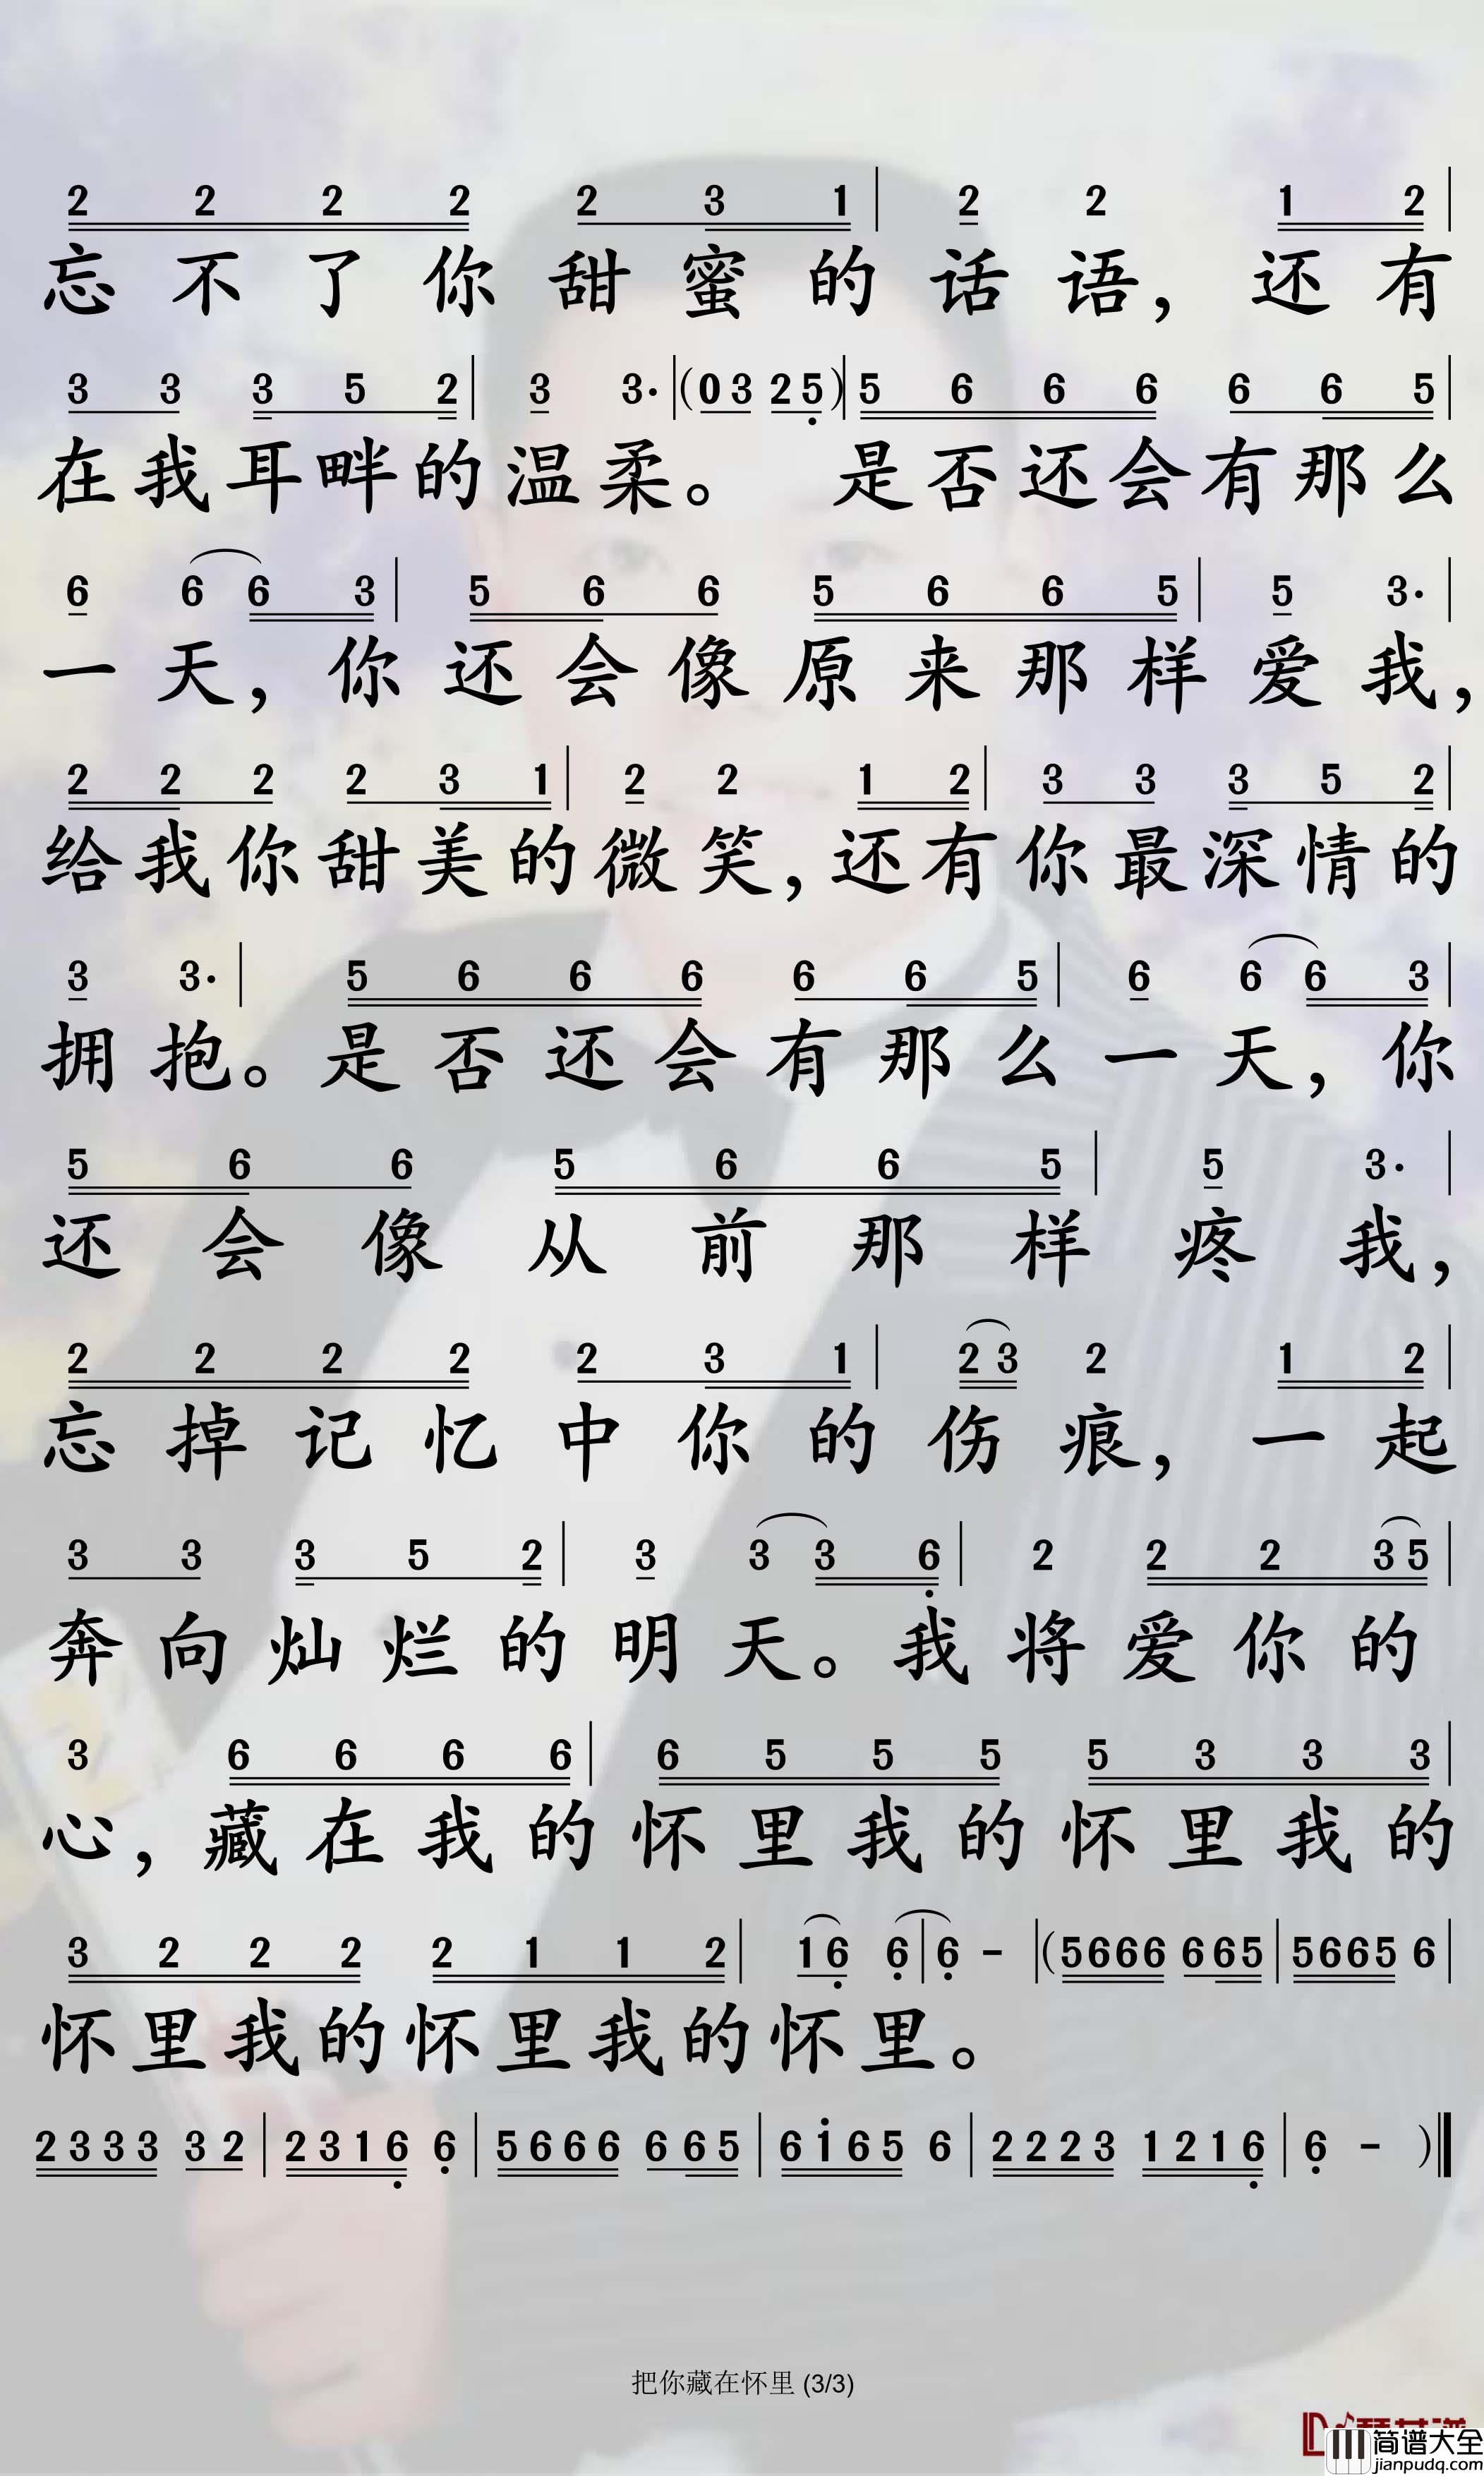 2 2 2 2 2 3 1 | 2 2 1 2 |
忘不了你甜蜜的话语，还有
3 3 3 5 2 | 3 3· | (0 3 2 5) | 5 6 6 6 6 6 5 |
在我耳畔的温柔。 是否还会有那么
6 6 6 3 | 5 6 6 5 6 6 5 | 5 3· |
一天，你还会像原来那样爱我，
2 2 2 2 3 1 | 2 2 1 2 | 3 3 3 5 2 |
给我你甜美的微笑，还有你最深情的
3 3· | 5 6 6 6 6 6 5 | 6 6 6 3 |
拥抱。是否还会有那么一天，你
5 6 6 5 6 6 5 | 5 3· |
还会像从前那样疼我，
2 2 2 2 2 3 1 | 2 3 2 1 2 |
忘掉记忆中你的伤痕，一起
3 3 3 5 2 | 3 3 3 6 | 2 2 2 3 5 |
奔向灿烂的明天。我将爱你的
3 6 6 6 6 | 6 5 5 5 5 3 3 3 |
心，藏在我的怀里我的怀里我的
3 2 2 2 2 1 1 2 | 1 6 6 | 6 - | (5 6 6 6 6 6 5 | 5 6 6 5 6 |
怀里我的怀里我的怀里。
2 3 3 3 3 2 | 2 3 1 6 6 | 5 6 6 6 6 6 5 | 6 1 6 5 6 | 2 2 2 3 1 2 1 6 | 6 - )‖
把你藏在怀里 (3/3)
简谱大全
jianpudq.com